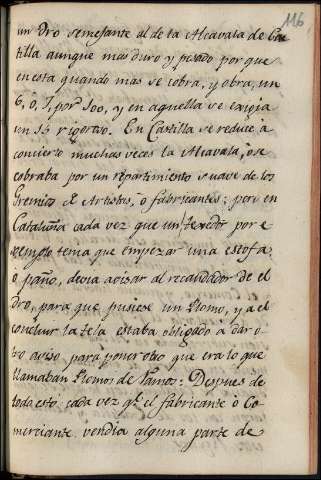 116
un Dro semejante al de la Alcavala de Cas
tilla aunque mas duro y pesado por que
en esta quando mas se cobra, y obra, un
6, o, 7, por 100, y en aquella se exijia
un 15 rigoroso. En Castilla se reduce à
concierto muchas veces la Alcavala, o se
cobraba por un repartimiento suave de los
Gremios de Artistas, o fabricantes: pero en
Cataluña cada vez que un texedor por e
xemplo tenia que empezar una estofa,
ò paño, devia avisar al recaudador de el
dro, para que pusiese un Plomo, y a el
concluir la tela estaba obligado à dar o-
tro aviso para poner otro que era lo que
llamaban Plomos de Ramos: Despues de
todo esto cada vez qe. el fabricante ò Co-
merciante vendia alguna parte de